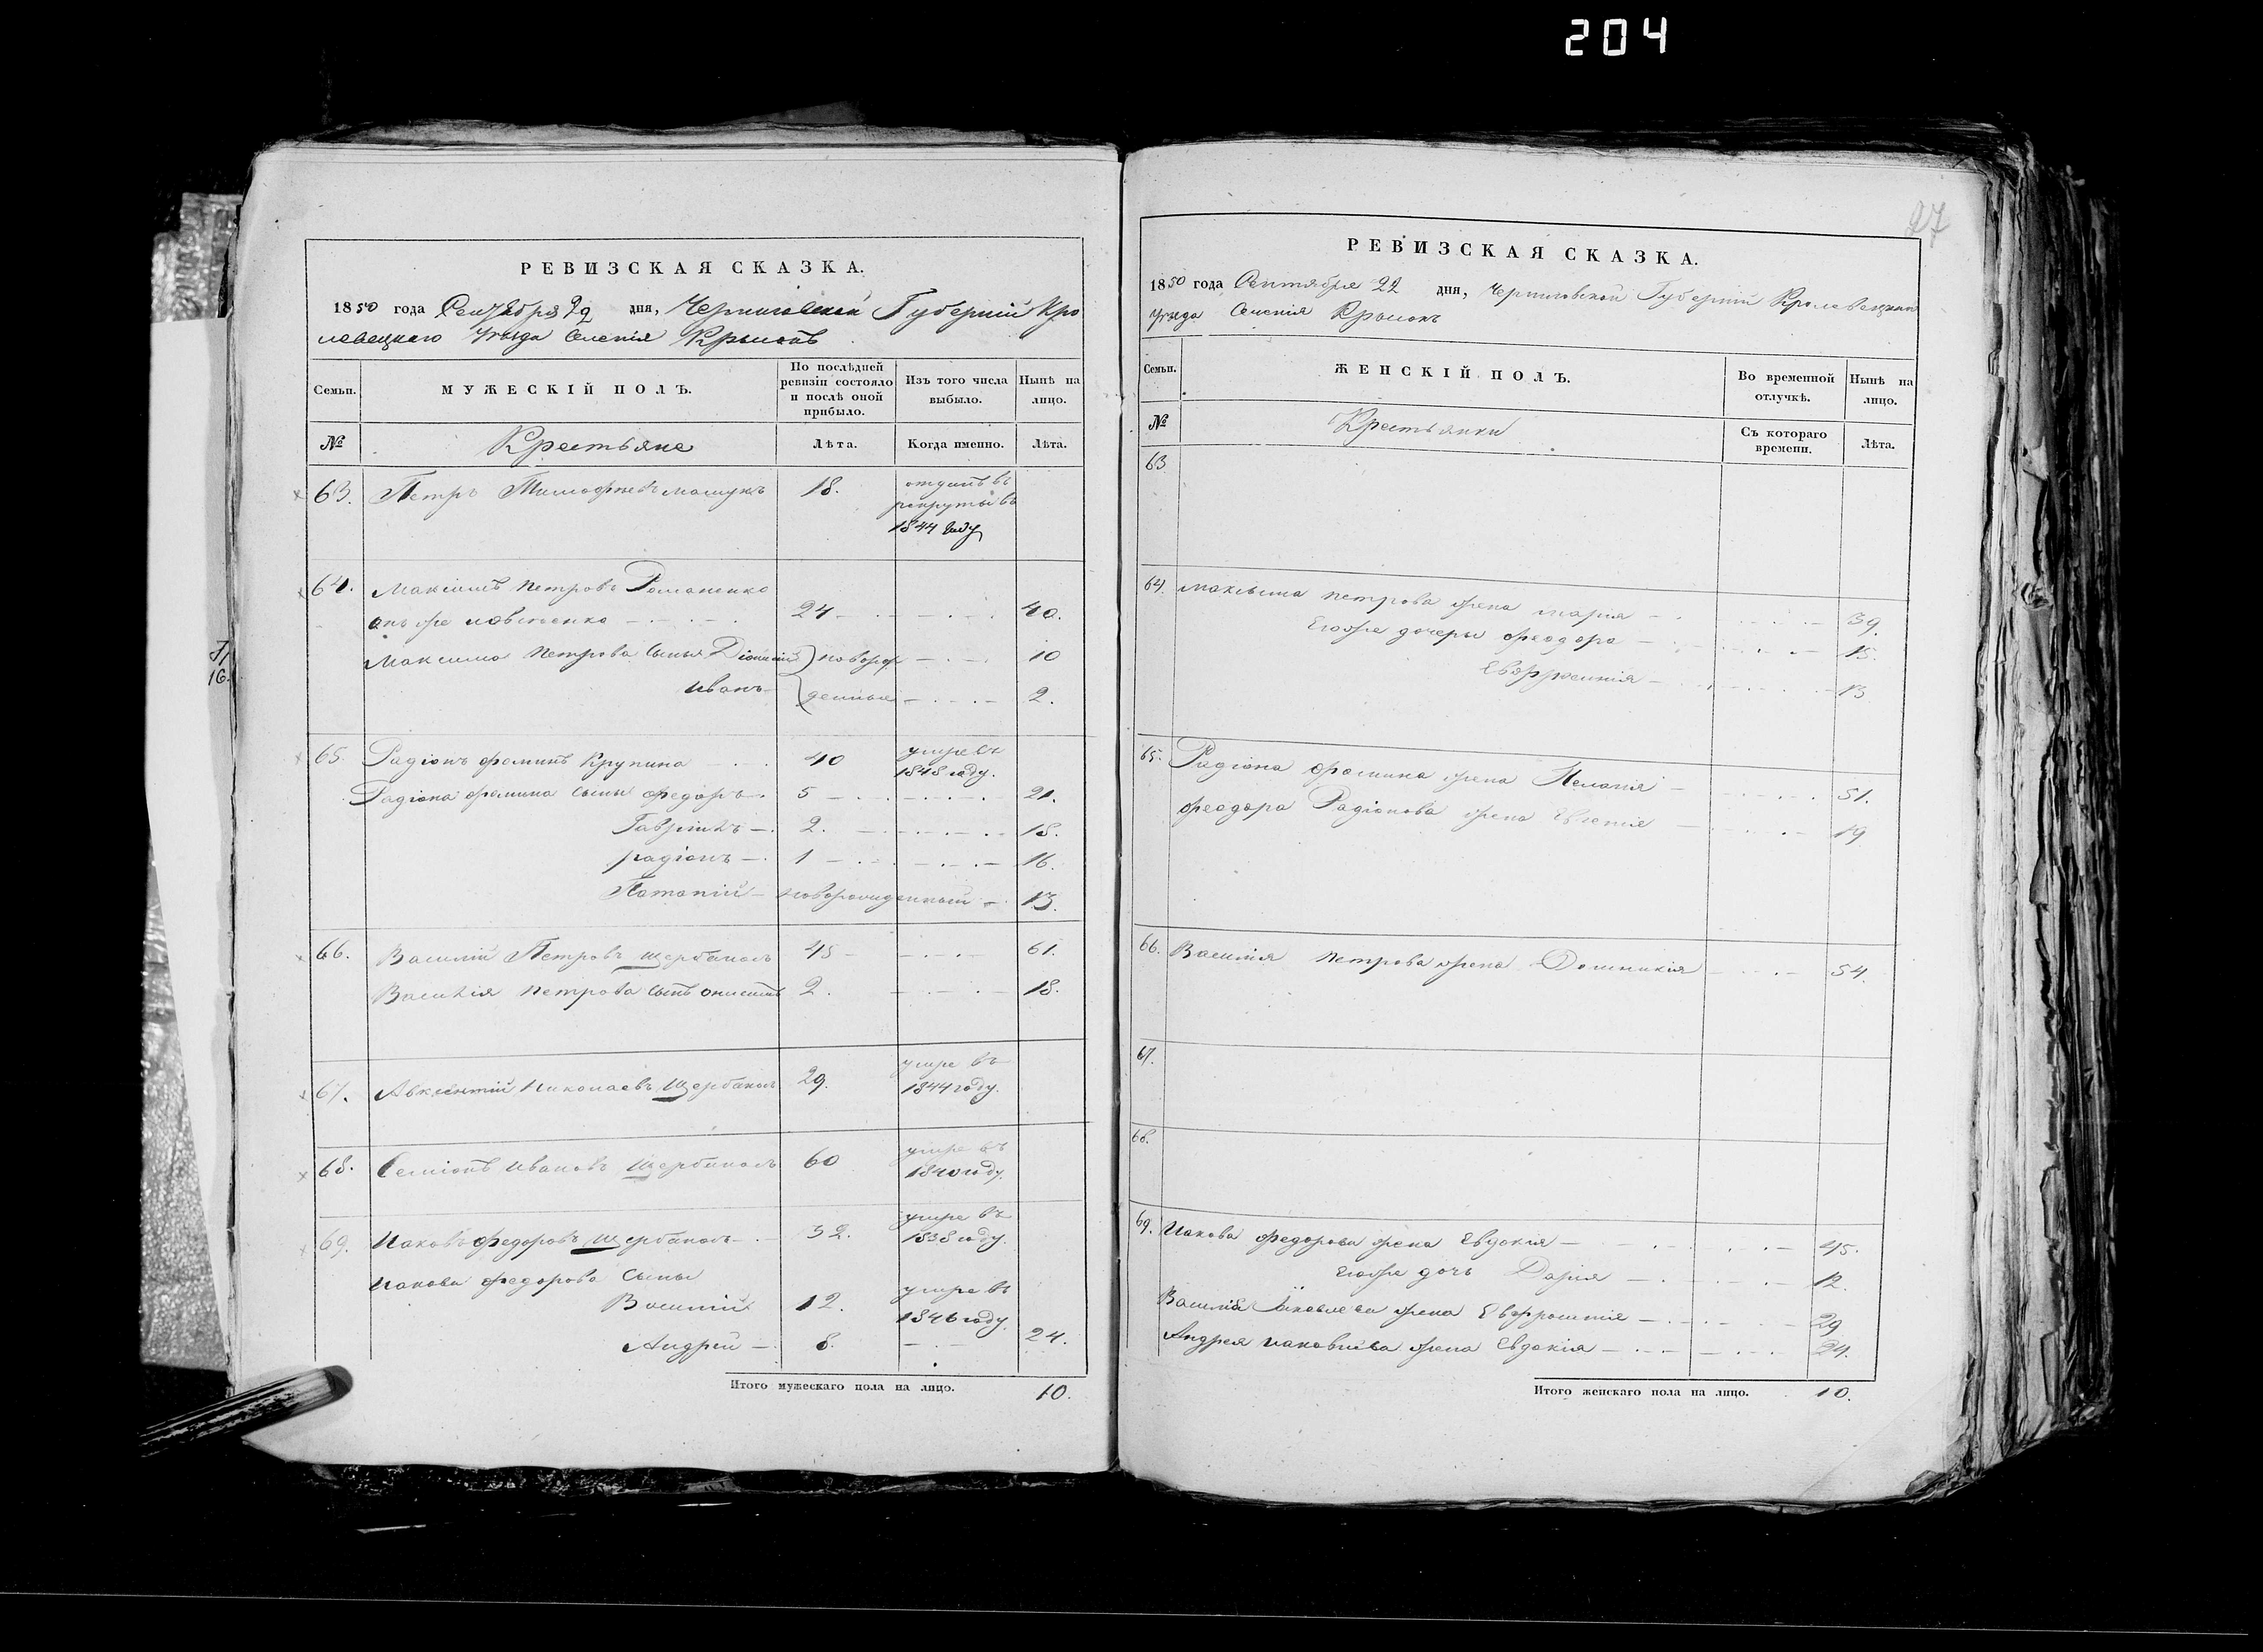 204
27
РЕВИЗСКАЯ СКАЗКА.
1850 года Сентября 22 дня, Черниговской Губернiи Кро
левецкаго Уѣзда Селенiя
Семьи. МУЖЕСКІЙ ПОЛЪ. По послѣдней ревизіи состояло и послѣ оной прибыло. Изъ того числа выбыло. Нынѣ на лицо.
№ Крестьяне Лѣта. Когда именно. Лѣта.
63. Петръ Тимофѣевъ 18. отданъ въ
рекруты въ
1844 году
64. Максимъ Петровъ Романенко
онъ же 24 40.
Максима Петрова сынья Дiонисiй новорож 10
Иванъ денные 2.
65. Радiонъ Фоминъ Крупина 40 умре въ
1848 году.
Радiона Фомина сыны Федоръ 5 21.
Гаврiилъ 2. 18.
Радiонъ 1 16.
Потапiй новорожденный 13.
66. Василiй Петровъ Щербаковъ 45 61.
Василiя Петрова сынъ 2. 18.
67. Авксентiй Николаевъ Щербаковъ 29. умре въ
1844 году.
68. Семiонъ Ивановъ Щербаковъ 60 умре въ
1840 году.
69. Иаковъ Федоровъ Щербаковъ 32. умре въ
1838 году.
Иакова Федорова сыны
Василiй 12. умре въ
1846 году
Андрей 8. 24.
Итого мужескаго пола на лицо. 10.
РЕВИЗСКАЯ СКАЗКА.
1850 года Сентября 22 дня, Черниговской Губернiи Кролевецкаго
Уѣзда Селенiя
Семьи. ЖЕНСКІЙ ПОЛЪ. Во временной отлучкѣ. Нынѣ на лицо.
№ Крестьянки Съ котораго времени. Лѣта.
63
64. Максима Петрова жена Марiя 39.
Егоже дочери Феодора 15.
Евфросинiя 13
65. Радiона Фомина жена Пелагiя 51.
Феодора Радiонова жена Евгенiя 19
66. Василiя Петрова жена Домникiя 54.
67.
68.
69. Иакова Федорова жена Евдокiя 45.
Егоже дочь Дарiя 12.
Василiя Iаковлева жена Евфросинiя 29
Андрея Иаковлева жена Евдокiя 24.
Итого женскаго пола на лицо. 10.